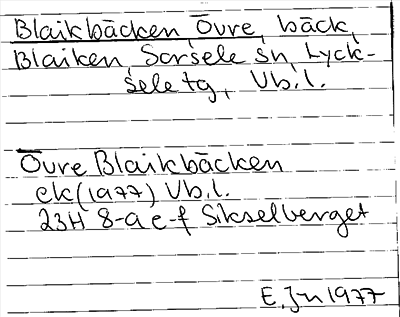 Blaikbäcken, Övre, bäck,
Blaiken, Sorsele sn, Lyck-
sele tg, Vb.l.
Övre Blaikbäcken
ek (1977) Vb.l.
23H 8-9 e-f Sikselberget
E. Jn 1977